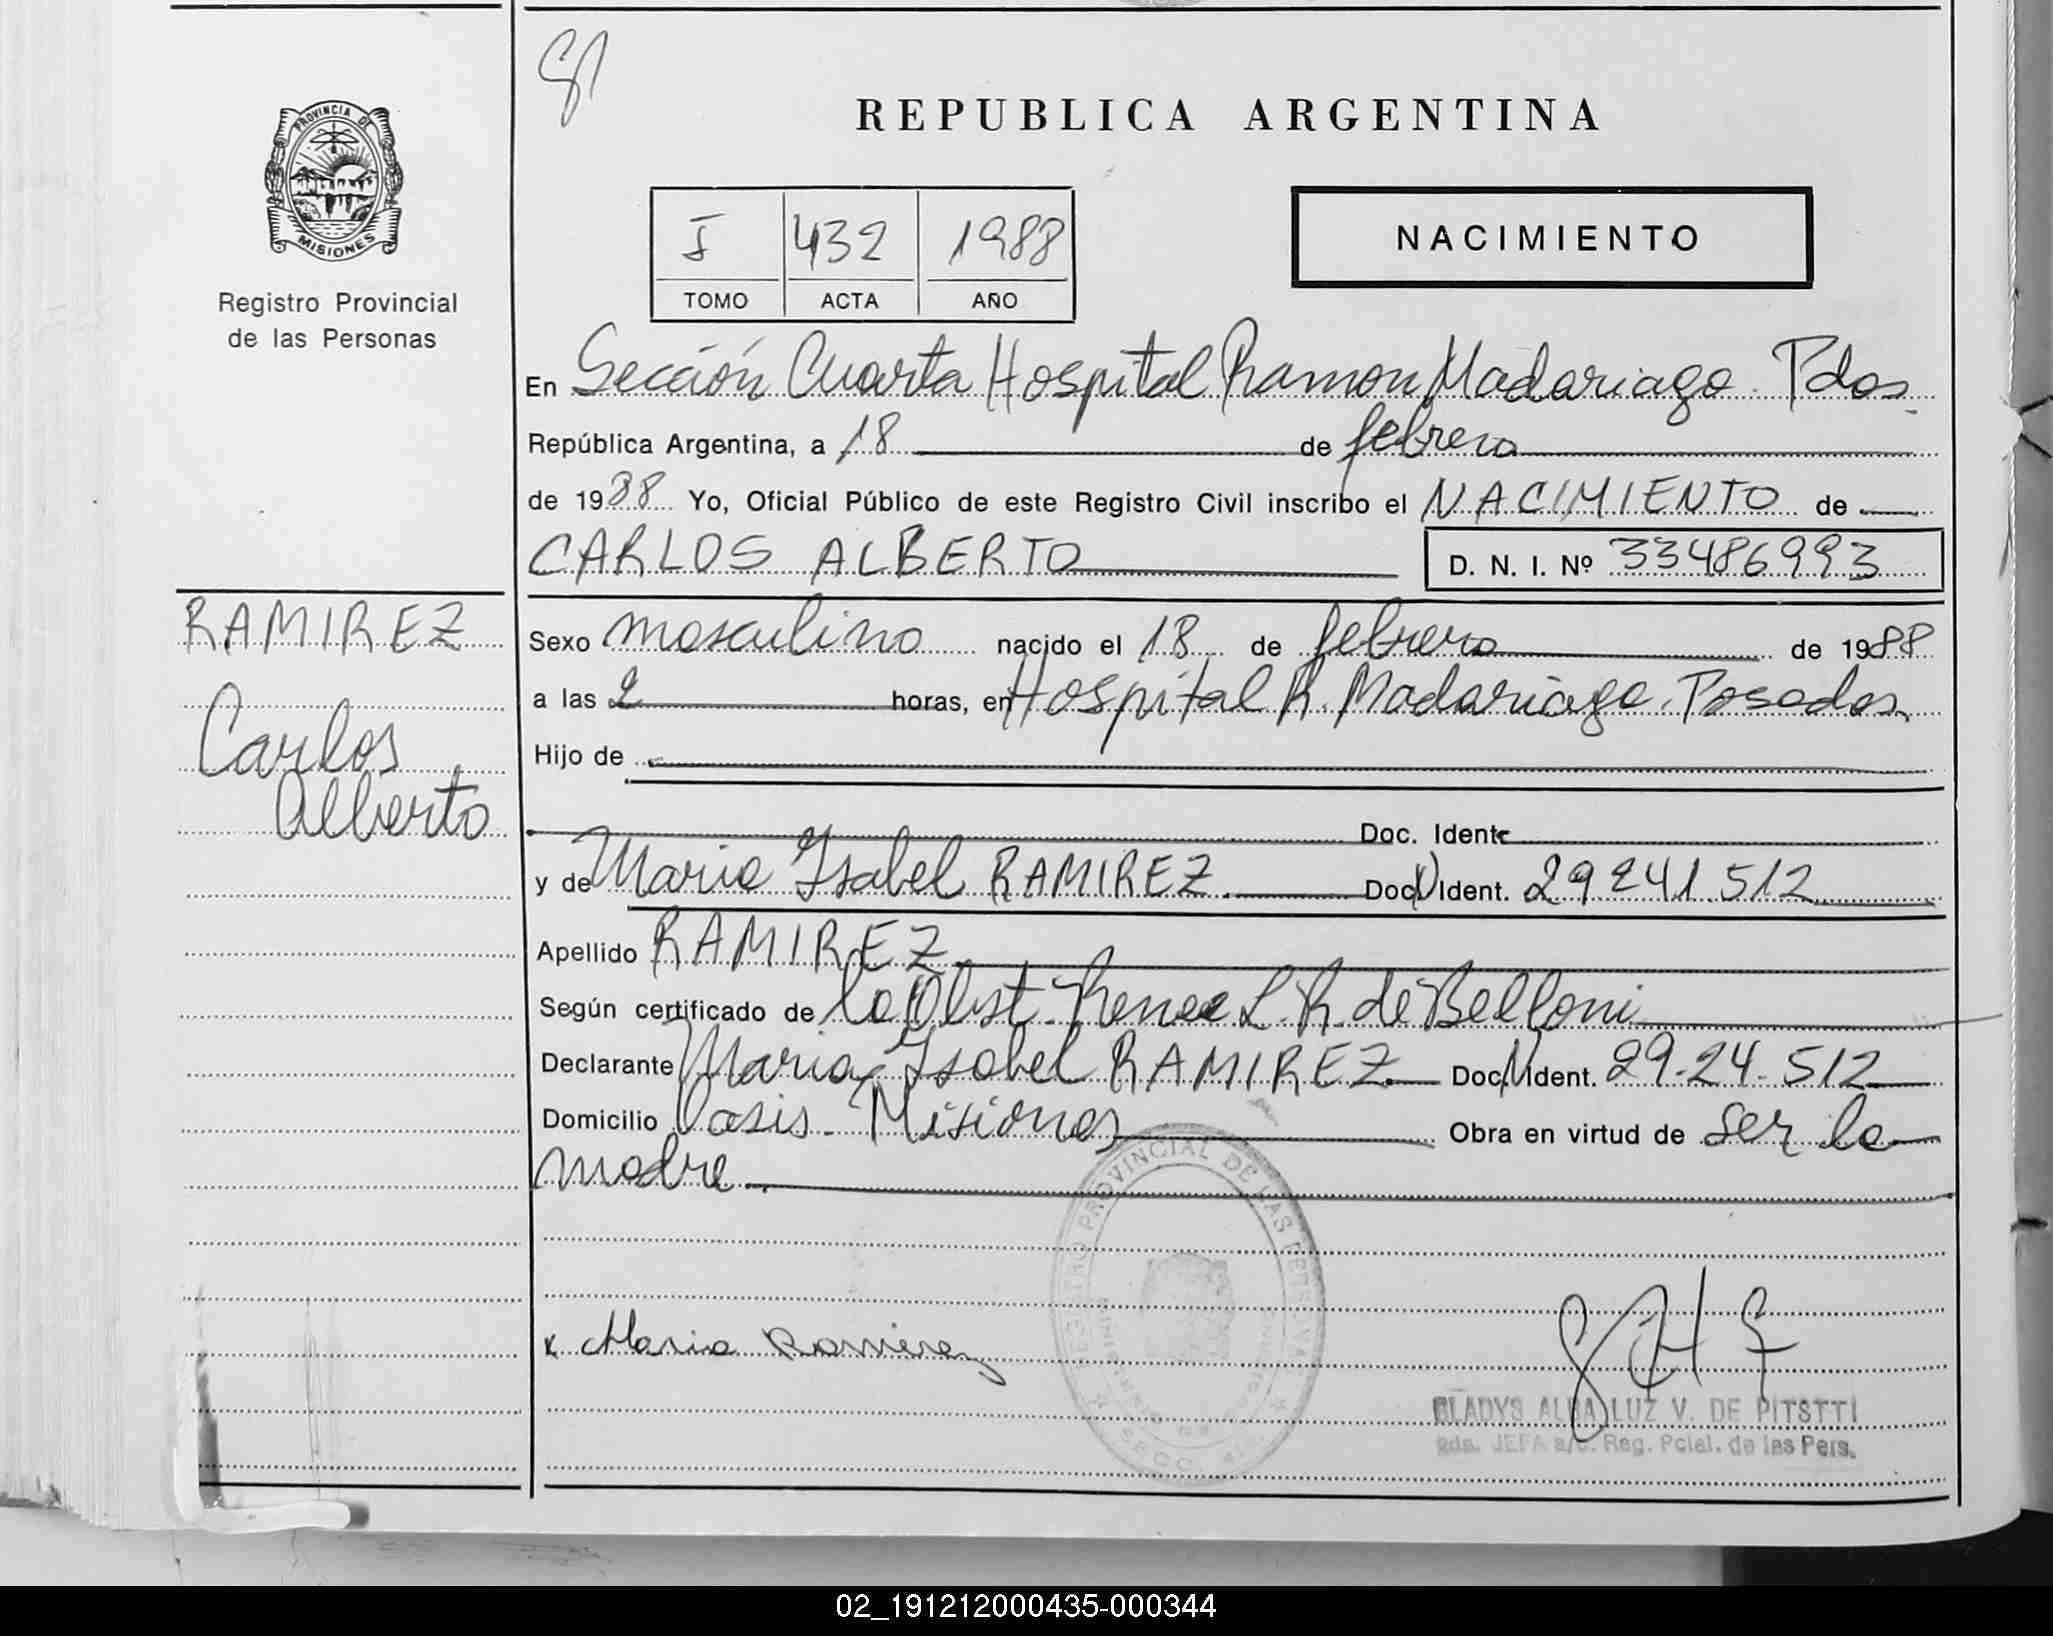 PROVINCIA DE
MISIONES
Registro Provincial
de las Personas
REPUBLICA ARGENTINA
I 432 1988
TOMO ACTA AÑO
NACIMIENTO
En Sección Cuarta Hospital Ramon Madariaga. Pdas.
República Argentina, a 18 de febrero
de 1988 Yo, Oficial Público de este Registro Civil inscribo el NACIMIENTO de
CARLOS ALBERTO D. N. I. Nº 33486993
RAMIREZ
Carlos
Alberto
Sexo masculino nacido el 18 de febrero de 1988
a las 2 horas, en Hospital R. Madariaga. Posadas.
Hijo de
Doc. Ident.
y de Maria Ysabel RAMIREZ. Doc. Ident. 29241.512
Apellido RAMIREZ
Según certificado de la Obst. Renee L. R. de Belloni
Declarante Maria Ysabel RAMIREZ. Doc. Ident. 29.24.512
Domicilio Oasis. Misiones Obra en virtud de ser la
madre.
REGISTRO PROVINCIAL DE LAS PERSONAS
SECC. 4ta.
x Maria Ramirez
GLADYS ALBA LUZ V. DE PITSTTI
gda. JEFA a/c. Reg. Pcial. de las Pers.
02_191212000435-000344